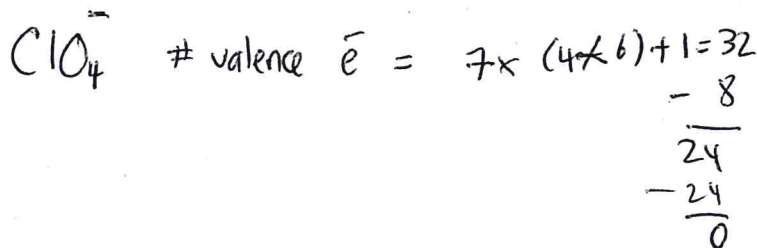 ClO₄⁻ # valence ē = 7x (4x6)+1=32
- 8
24
-24
0